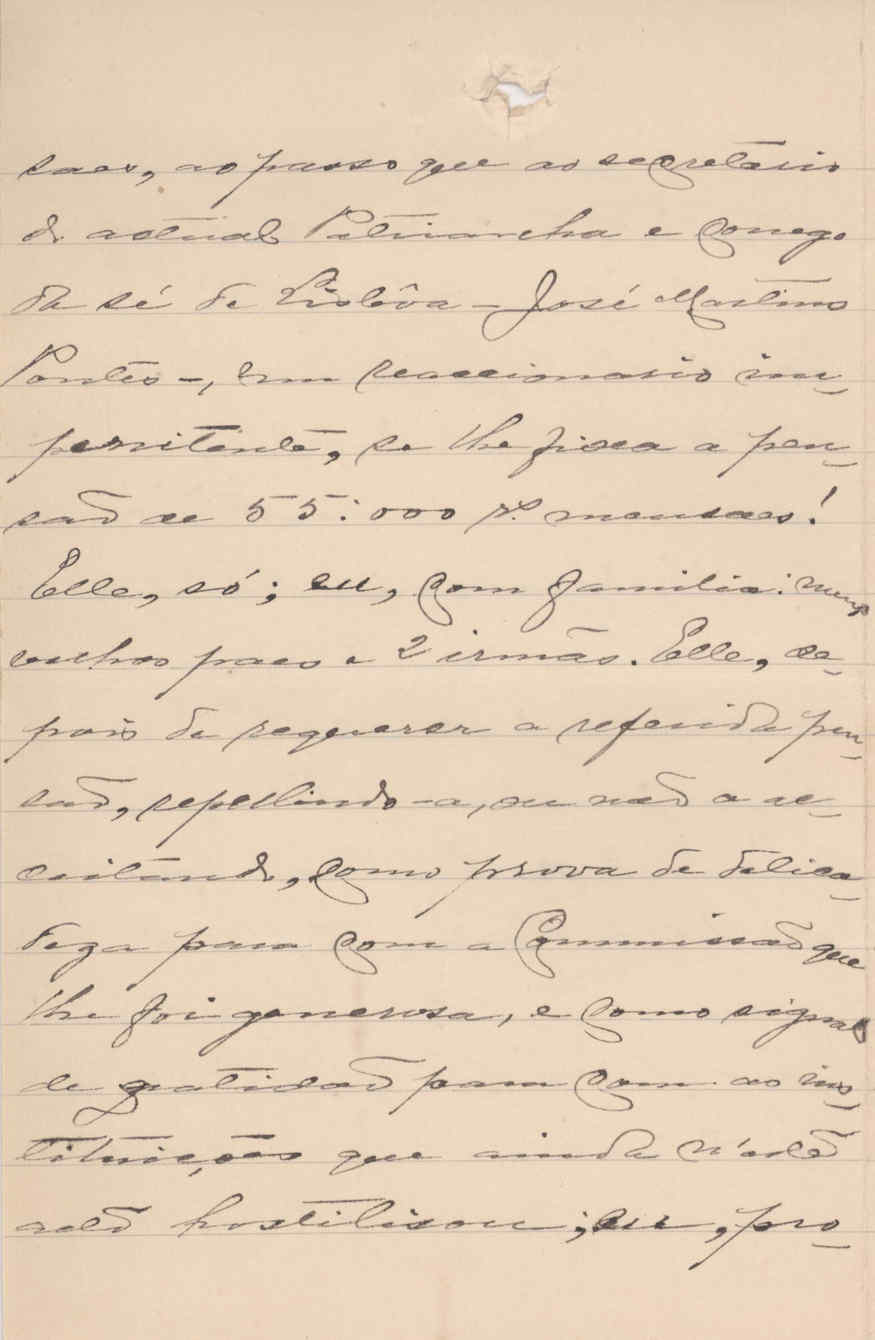 saes, ao passo que ao secretario
do actual Patriarcha e conego
da sé de Lisbôa — José Martins
Pontes —, um reaccionario im-
penitente, se lhe fixa a pen-
são de 55:000 rs. mensaes!
Elle, só; eu, com familia: meus
velhos paes e 2 irmãs. Elle, de-
pois de requerer a referida pen-
são, repellindo-a, ou não a ac-
ceitando, como prova de delica-
deza para com a Commissão que
lhe foi generosa, e como signal
de gratidão para com as ins-
tituições que ainda
não hostilisou; eu, pro-